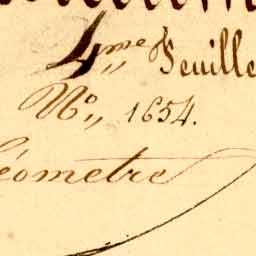 4me,, Feuille
No,, 1654.
éometre